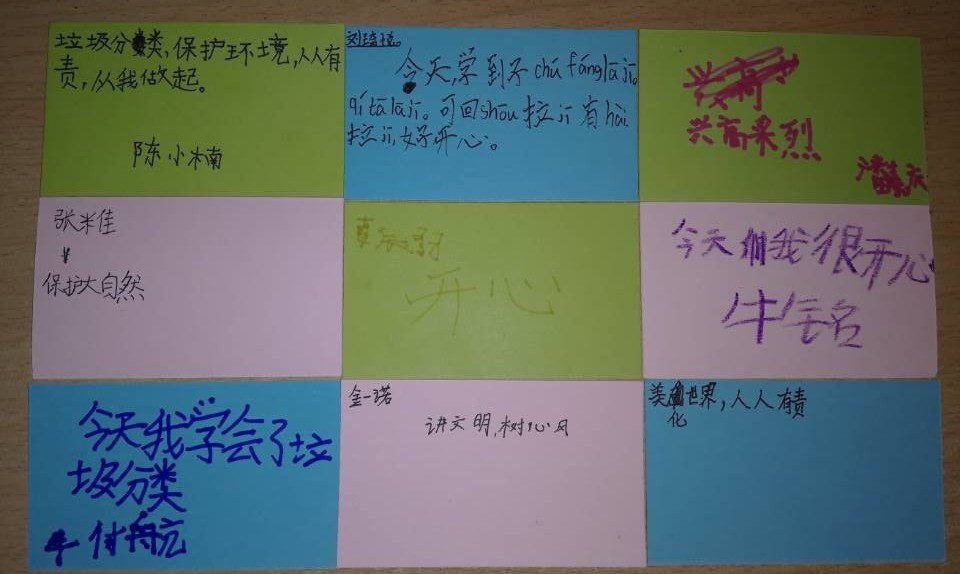 垃圾分类,保护环境,人人有
责,从我做起。
陈小楠
今天,学到了chú fánglājī。
qítālājī。可回shōu拉jī有hài
拉jī,好开心。
兴高
兴高采烈
张米佳
保护大自然
开心
今天我很开心
牛
今天我学会了垃
圾分类
付航亢
金一诺
讲文明,树心风
美化世界,人人有责